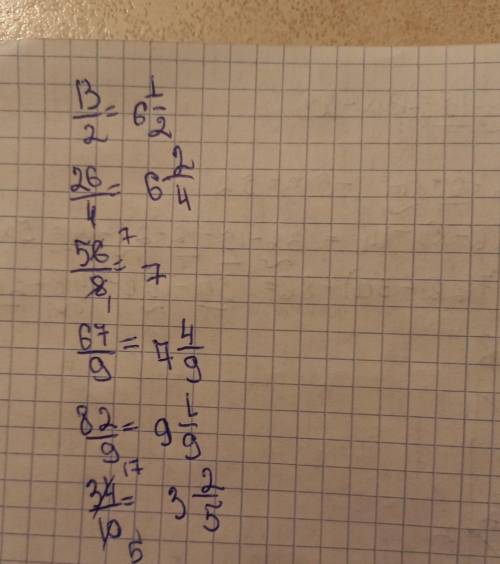 13/2 = 6 1/2
26/4 = 6 2/4
58/8 = 7 7 1
67/9 = 7 4/9
82/9 = 9 1/9
34/10 = 17 5 3 2/5